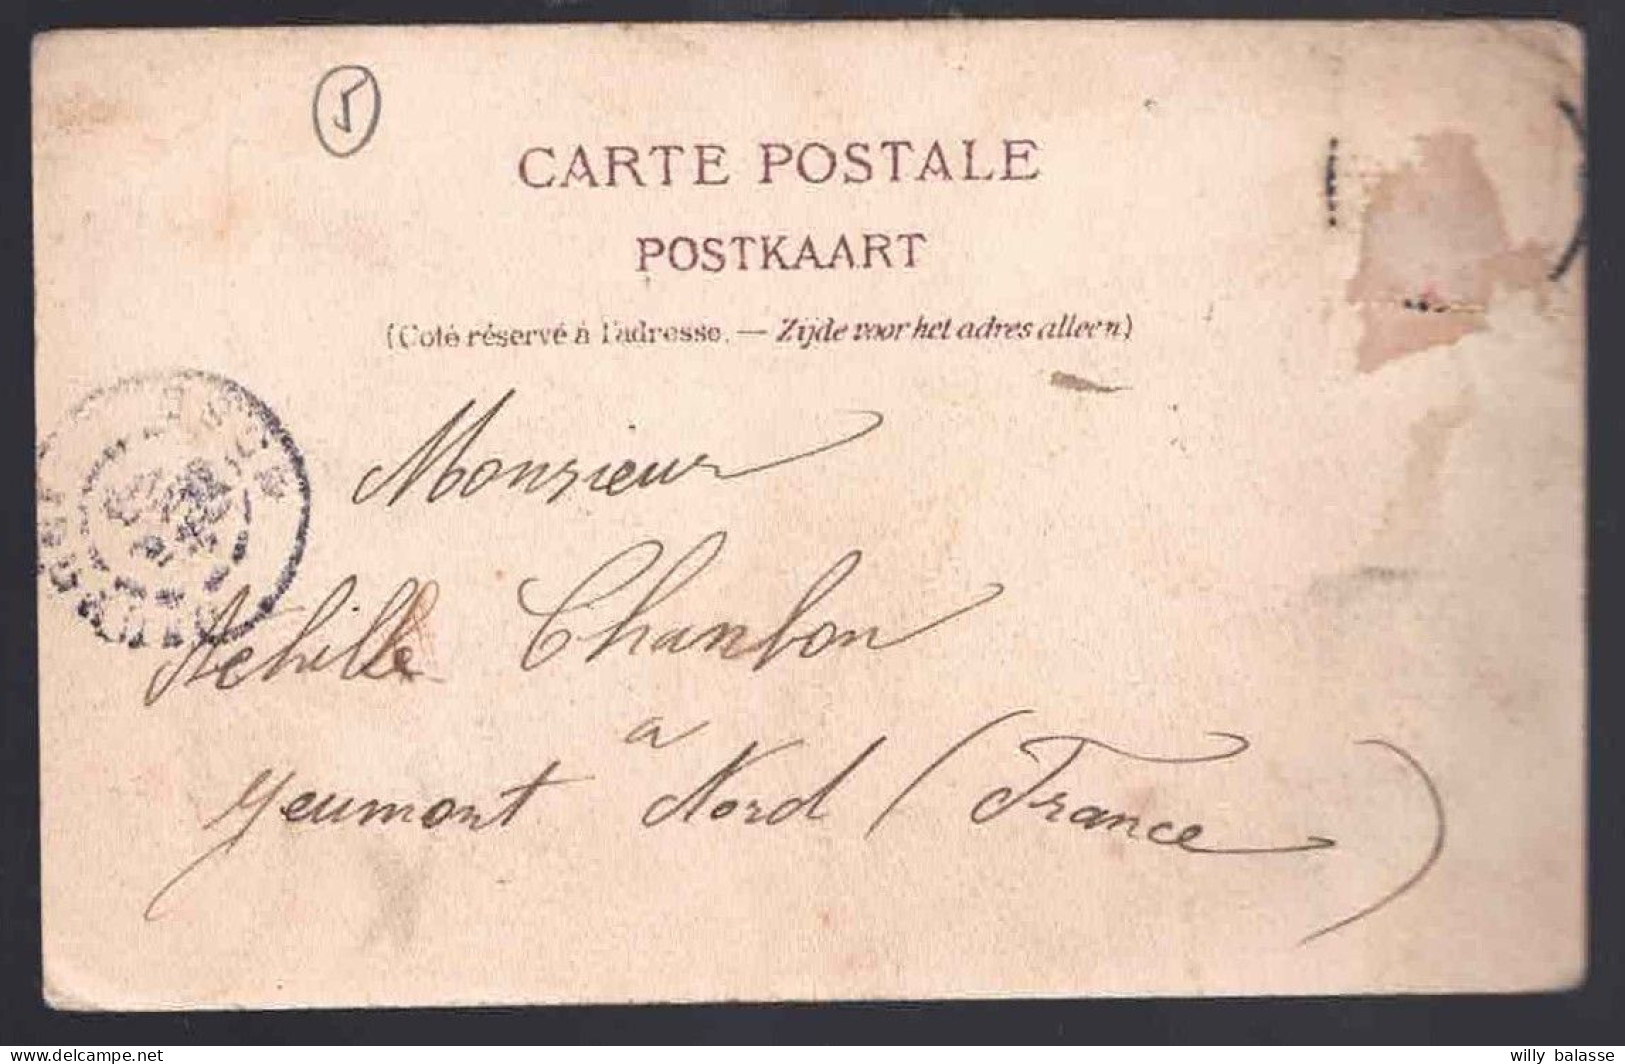 5
CARTE POSTALE
POSTKAART
(Coté réservé à l'adresse. — Zijde voor het adres alleen)
Monsieur
Achille Chanbon
a
Jeumont Nord (France)
willy balasse